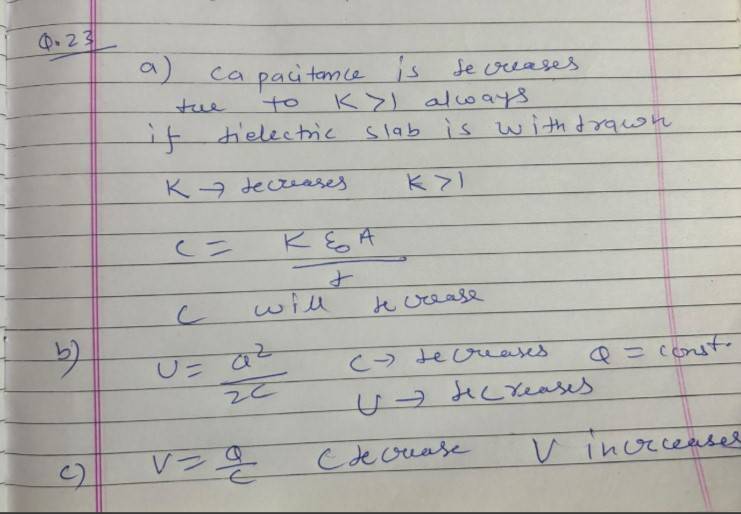 Q.23
a) capacitance is decreases
due to K>1 always
if dielectric slab is withdrawn
K → decreases K>1
C = K ε₀ A / d
C will decrease
b) U = Q² / 2C C → decreases Q = const.
U → decreases
c) V = Q / C C decrease V increases